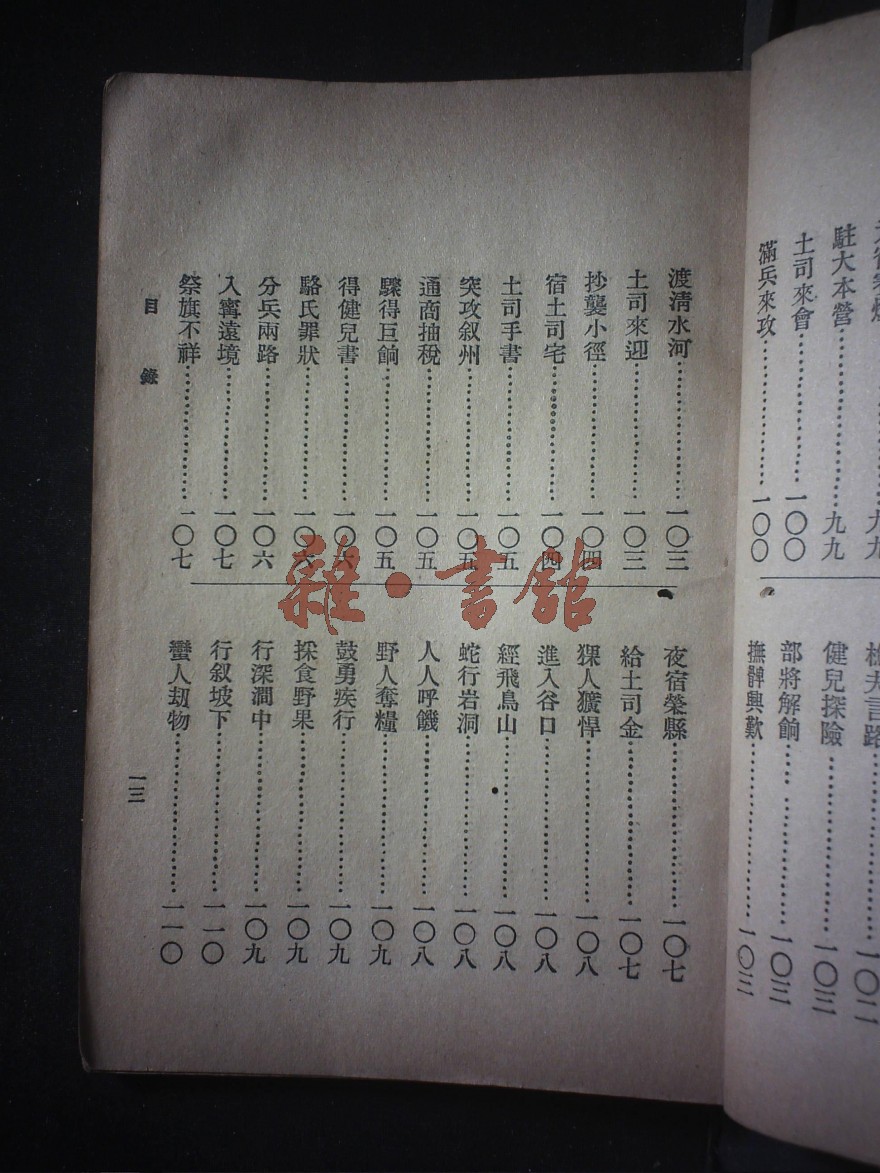 滿兵來攻 一〇〇
土司來會 一〇〇
駐大本營 九九
九九
撫髀興歎 一〇三
部將解餉 一〇三
健兒探險 一〇三
樵夫言路
渡清水河 一〇三
土司來迎 一〇三
抄襲小徑 一〇四
宿土司宅 一〇四
土司手書 一〇五
突攻叙州 一〇五
通商抽稅 一〇五
驟得巨餉 一〇五
得健兒書 一〇六
駱氏罪狀 一〇六
分兵兩路 一〇六
入寗遠境 一〇七
祭旗不祥 一〇七
夜宿榮縣 一〇七
給土司金 一〇七
猓人獷悍 一〇八
進入谷口 一〇八
經飛鳥山 一〇八
蛇行岩洞 一〇八
人人呼饑 一〇八
野人奪糧 一〇九
鼓勇疾行 一〇九
採食野果 一〇九
行深澗中 一〇九
行叙坡下 一一〇
蠻人刼物 一一〇
目錄
一三
雜·書館